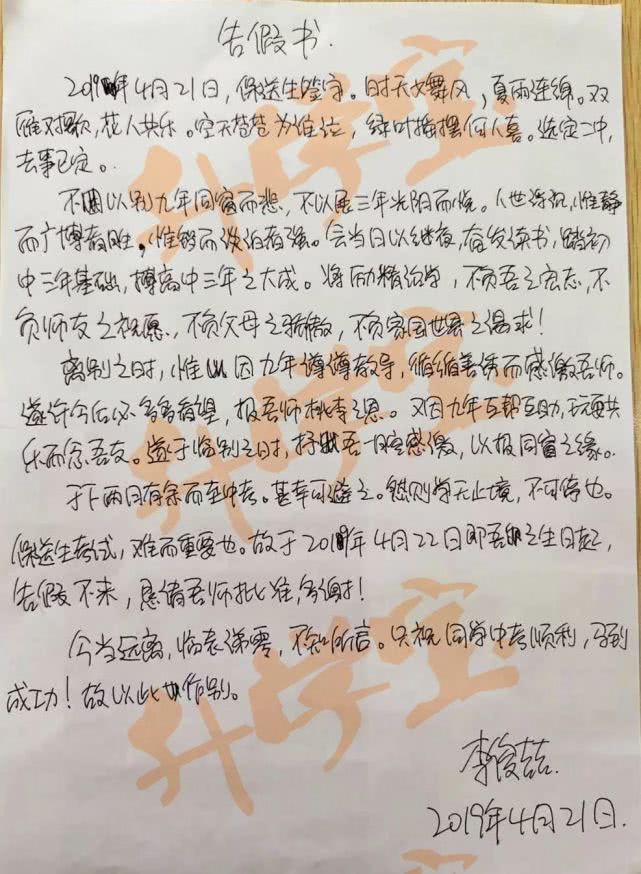 告假书.
2019年4月21日,保送生签字。时天女舞风,夏雨连绵。双
雁对摆歌,花人共乐。空天苍苍为谁泣,绿叶摇摆何人喜。选定二中,
去事已定。
不因以别九年同窗而悲,不以展三年光阴而悦。人世浮沉,惟静
而广博者胜,惟敛而淡泊者强。会当日以继夜,奋发读书,踏初
中三年基础,搏高中三年之大成。将励精治学,不负吾之宏志,不
负师友之祝愿,不负父母之骄傲,不负家国世界之渴求!
离别之时,惟以因九年谆谆教导,循循善诱而感激吾师。
遂许今后必多多看望,报吾师桃李之恩。又因九年互帮互助,玩耍共
乐而念吾友。遂于临别之时,抒吾一腔感激,以报同窗之缘。
于下两月有余而至中考。甚幸可避之。然则学无止境,不可停也。
保送生考试,难而重要也。故于2019年4月22日即吾之生日起,
告假不来,恳请吾师批准,多谢!
今当远离,临表涕零,不知所言。只祝同学中考顺利,马到
成功!故以此书作别。
李俊喆.
2019年4月21日.
升学宝
升学宝
升学宝